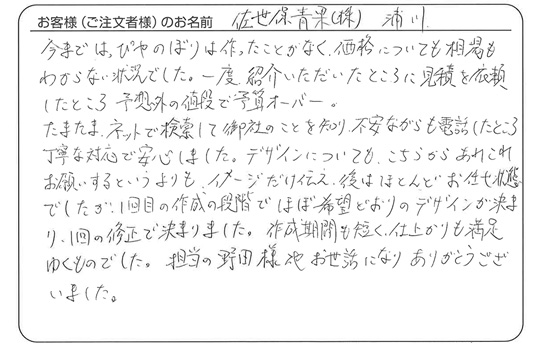 お客様(ご注文者様)のお名前 佐世保青果(株) 浦川
今までは、ぴやのぼりは作ったことがなく、価格についても相場も
わからない状況でした。一度紹介いただいたところに見積を依頼
したところ予想外の値段で予算オーバー。
たまたま、ネットで検索して御社のことを知り、不安ながらも電話したところ
丁寧な対応で安心しました。デザインについても、こちらからあれこれ
お願いするというよりも、イメージだけ伝え、後はほとんどお任せ状態
でしたが、1回目の作成の段階でほぼ希望どおりのデザインが決ま
り、1回の修正で決まりました。作成期間も短く、仕上がりも満足
ゆくものでした。担当の野田様 お世話になりありがとうござ
いました。